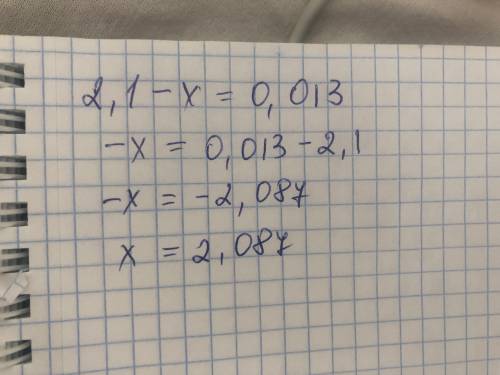 2,1 - x = 0,013
-x = 0,013 - 2,1
-x = -2,087
x = 2,087